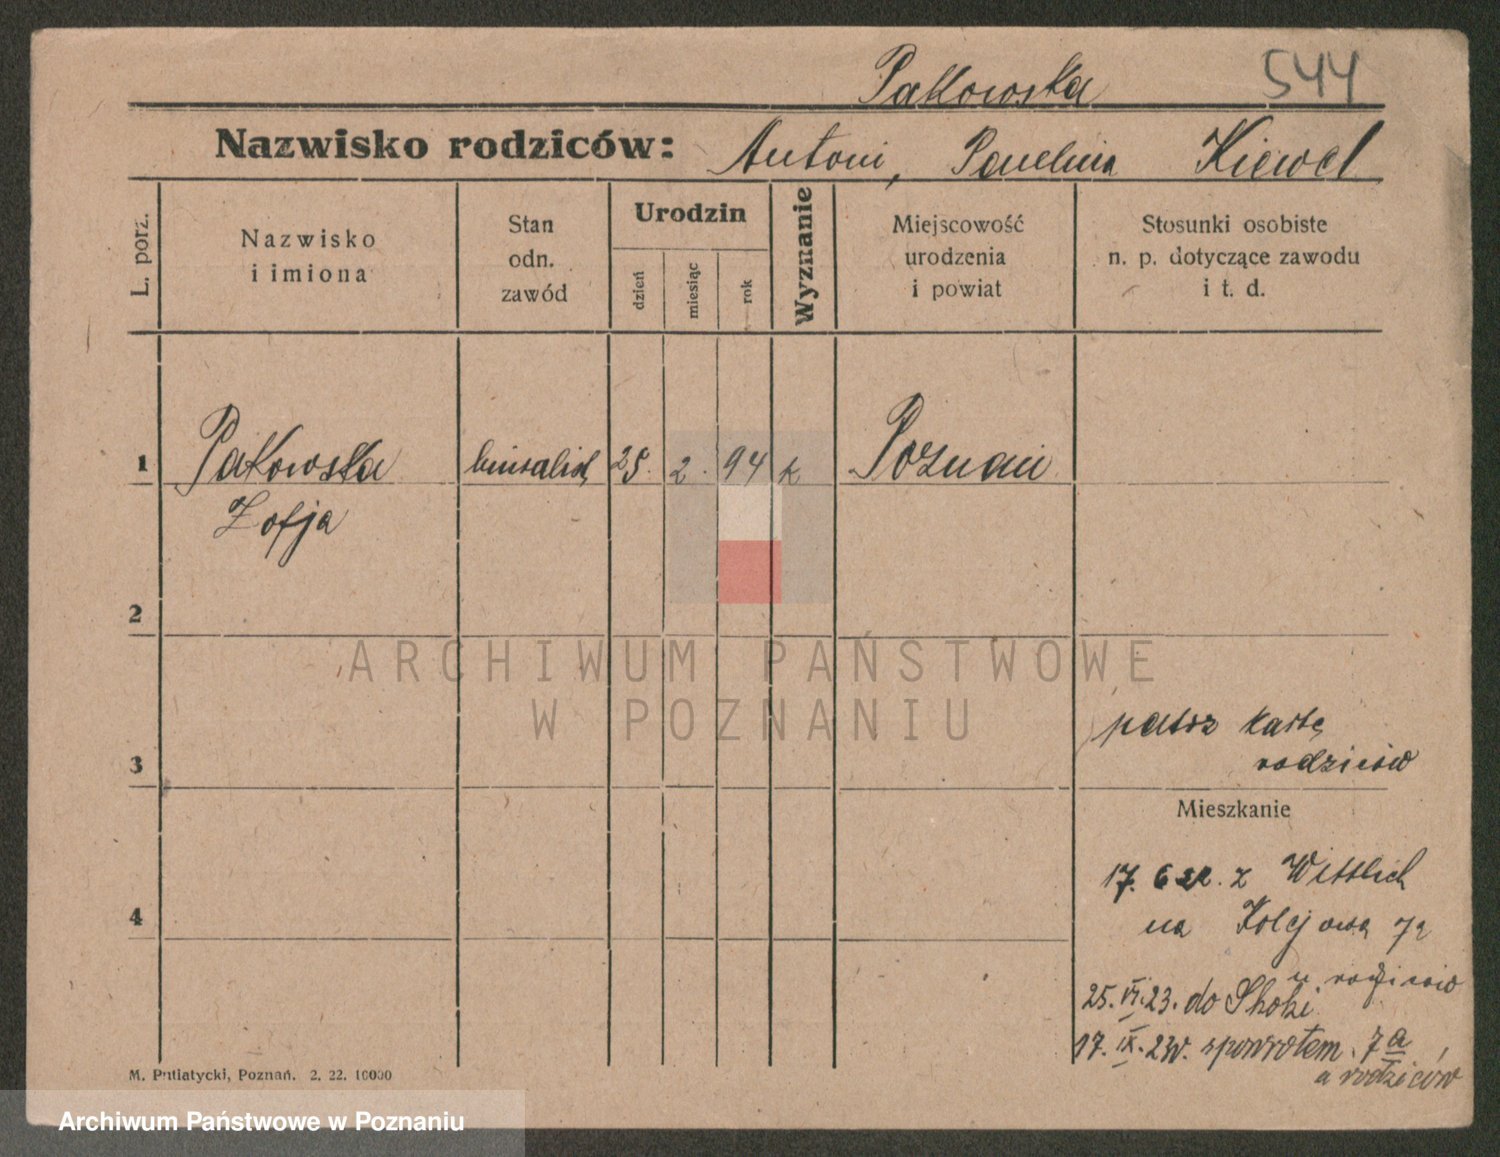 Patkowska 544
Nazwisko rodziców: Antoni, Paulina Kiewel
L. porz.
Nazwisko
i imiona
Stan
odn.
zawód
Urodzin
dzień
miesiąc
rok
Wyznanie
Miejscowość
urodzenia
i powiat
Stosunki osobiste
n. p. dotyczące zawodu
i t. d.
1 Patkowska 25. 2. 94 k Poznań
Zofja
2
ARCHIWUM PAŃSTWOWE
W POZNANIU
patrz kartę
3 rodziców
Mieszkanie
17. 6 22. z Wittlich
4 na Kolejową 7a
u rodziców
25. VI. 23. do
17. IX. 23r. spowrotem. 7a
u rodziców
M. Putiatycki, Poznań. 2. 22. 10000
Archiwum Państwowe w Poznaniu